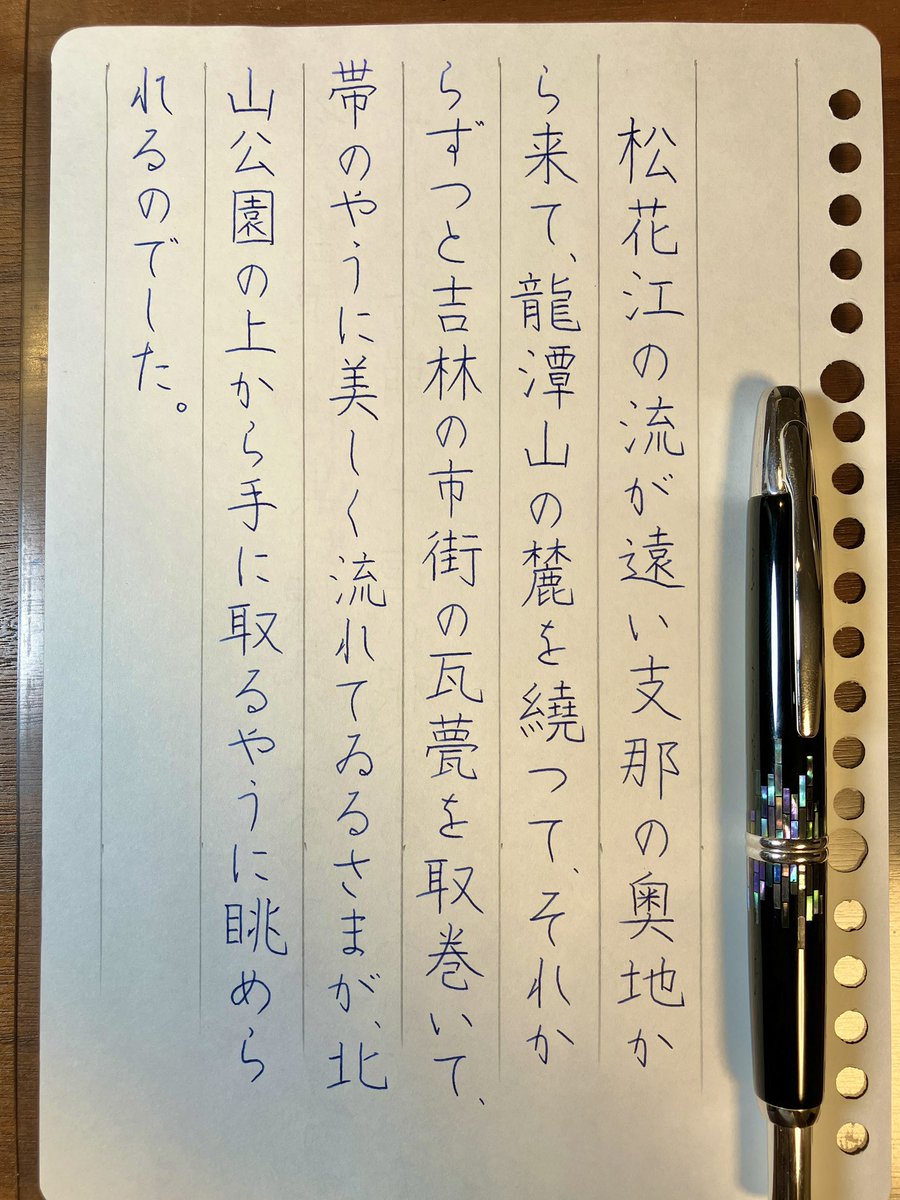 松花江の流が遠い支那の奥地か
ら来て、龍潭山の麓を繞つて、それか
らずつと吉林の市街の瓦甍を取巻いて、
帯のやうに美しく流れてゐるさまが、北
山公園の上から手に取るやうに眺めら
れるのでした。